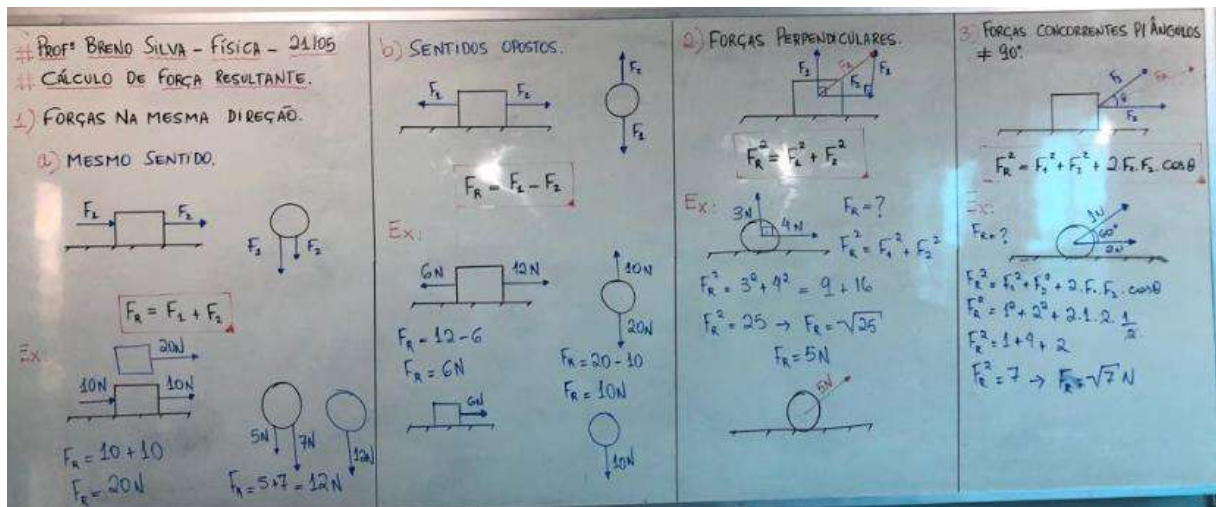 # PROFº BRENO SILVA - FÍSICA - 21/05
# CÁLCULO DE FORÇA RESULTANTE.
1) FORÇAS NA MESMA DIREÇÃO.
a) MESMO SENTIDO.
F₁ F₂
F₁ F₂
F_R = F₁ + F₂
Ex:
20N
10N 10N
F_R = 10 + 10
F_R = 20N
5N 7N 12N
F_R = 5+7 = 12N
b) SENTIDOS OPOSTOS.
F₂
F₁
F_R = F₁ - F₂
Ex:
6N 12N
F_R = 12 - 6
F_R = 6N
6N
10N
20N
F_R = 20 - 10
F_R = 10N
10N
2) FORÇAS PERPENDICULARES.
F₁ F_R
F_R² = F₁² + F₂²
Ex:
3N 4N
F_R = ?
F_R² = F₁² + F₂²
F_R² = 3² + 4² = 9 + 16
F_R² = 25 → F_R = √25
F_R = 5N
5N
3) FORÇAS CONCORRENTES P/ ÂNGULOS
≠ 90°.
F_R
θ
F_R² = F₁² + F₂² + 2.F₁.F₂.cosθ
Ex:
F_R = ?
1N
60°
2N
F_R² = F₁² + F₂² + 2.F₁.F₂.cosθ
F_R² = 1² + 2² + 2.1.2.1/2
F_R² = 1 + 4 + 2
F_R² = 7 → F_R = √7 N